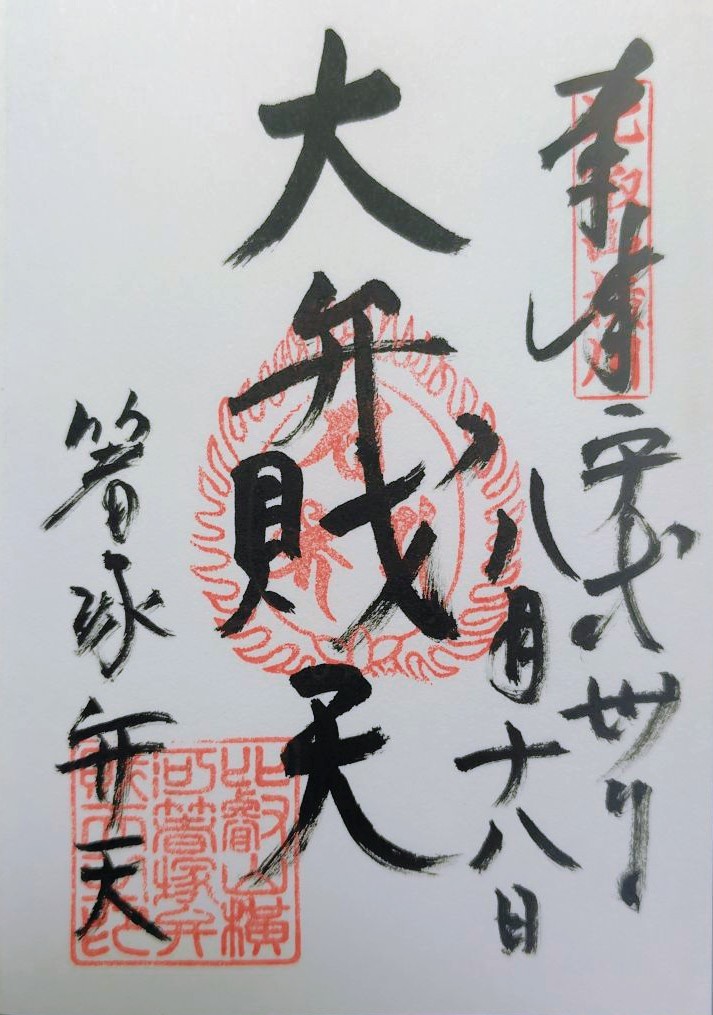 奉拝
比叡山横川
平成丗年
八月十八日
大弁財天
箸塚弁天
比叡山横
河箸塚弁